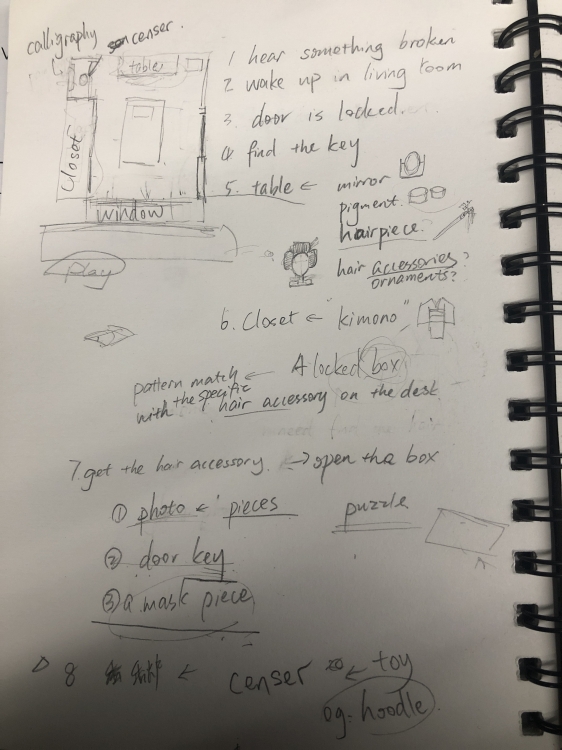 calligraphy
censer.
table
Closet
window
play
1 hear something broken
2 wake up in living room
3. door is locked.
4 find the key
5. table ← mirror
pigment.
hairpiece?
hair accessories?
ornaments?
6. Closet ← "kimono"
A locked box
pattern match ←
with the specific
hair accessory on the desk
7. get the hair accessory. → open the box
① photo ← pieces
puzzle
② door key
③ a mask piece
8 ← censer ← toy
og. hoodle.